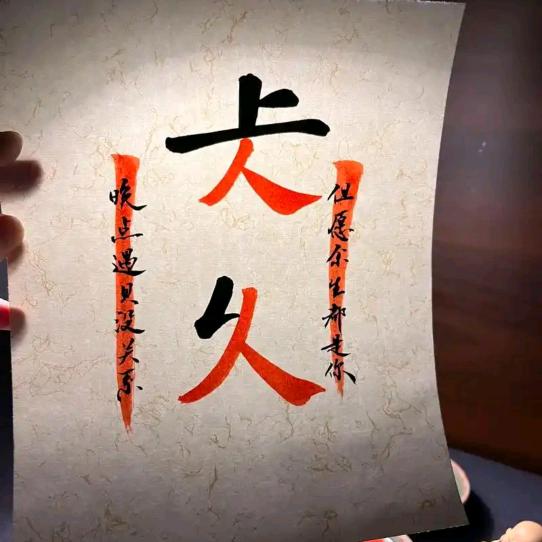 久
晚点遇见没关系
但愿余生都是你